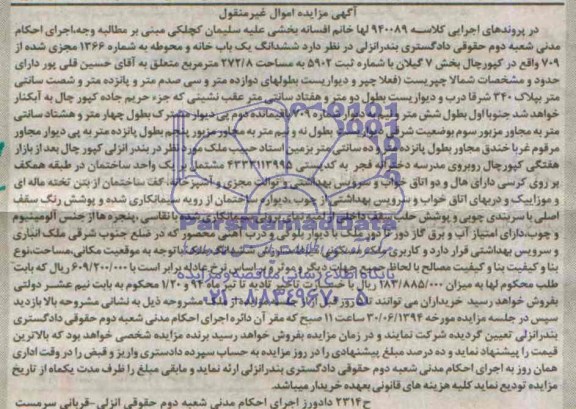 آگهی مزایده اموال غیرمنقول
در پرونده‌های اجرایی کلاسه ۹۴۰۰۸۹ لها خانم افسانه بخشی علیه سلیمان کچلکی مبنی بر مطالبه وجه،اجرای احکام
مدنی شعبه دوم حقوقی دادگستری بندرانزلی در نظر دارد ششدانگ یک باب خانه و محوطه به شماره ۱۳۶۶ مجزی شده از
۷۰۹ واقع در کپورچال بخش ۷ گیلان با شماره ثبت ۵۹۰۲ به مساحت ۲۷۲/۸ مترمربع متعلق به آقای حسین قلی پور دارای
حدود و مشخصات شمالا چپریست (فعلا چپر و دیواریست بطولهای دوازده متر و سی صدم متر و پانزده متر و شصت سانتی
متر بپلاک ۳۴۰ شرقا درب و دیواریست بطول دو متر و هفتاد سانتی متر عقب نشینی که جزء حریم جاده کپور چال به آبکنار
خواهد شد جنوبا اول بطول شش متر و نیم به دیوار ۷۰۹ باقیمانده دوم پی دیوار مشترک بطول چهار متر و هشتاد سانتی
متر به مجاور مزبور سوم بوضعیت شرقی بطول نه و نیم متر به مجاور مزبور پنجم بطول پانزده متر به پی دیوار مجاور
مرقوم غربا خندق مجاور بطول پانزده ده سانتی متر برزمین استاد حسب ملک مورد نظر در بندر انزلی کپور چال بعد از بازار
هفتگی کپورچال روبروی مدرسه دخترانه فجر به کدپستی ۴۳۳۲۱۱۳۹۹۵ مشتمل بر یک واحد ساختمان در طبقه همکف
بر روی کرسی دارای هال و دو اتاق خواب و سرویس بهداشتی و توالت مجزی و آشپزخانه، کف ساختمان از بتن تخته ماله ای
و موزاییک و دربهای اتاق خواب و سرویس بهداشتی از چوب،دیوار ساختمان از رویه سیمانکاری شده و پوشش رنگ سقف
اصلی با سربندی چوبی و پوشش حلب سقف داخلی نمای بیرونی سیمانکاری شده با نقاسی ،پنجره ها از جنس آلومینیوم
و چوب،دارای امتیاز آب و برق گاز دیوار بلوکی و درب آهنی محصور که در ضلع جنوب شرقی ملک انباری
و سرویس بهداشتی قرار دارد و کاربری ششدانگ ملک باتوجه به موقعیت مکانی،مساحت،نوع
بنا و کیفیت بنا و کیفیت مصالح با لحاظ دیگر و موثر قیمت پایه نرخ عادله برابر است با ۶۰۹/۲۰۰/۰۰۰ ریال که بابت
طلب محکوم لها به میزان ۱۸۳/۸۸۵/۰۰۰ ریال با خسارت تاخیر تادیه تا تیر ماه ۹۴ و ۱/۲۰ محکوم به بابت نیم عشر دولتی
بفروش خواهد رسید خریداران می توانند تا پنج روز قبل از مزایده از ملک مشروحه ذیل به نشانی مشروحه بالا بازدید
سپس در جلسه مزایده مورخه ۳۰/۰۶/۱۳۹۴ ساعت ۱۱ صبح که مقر آن دائره اجرای احکام مدنی شعبه دوم حقوقی دادگستری
بندرانزلی تعیین گردیده شرکت نمایند و در زمان مزایده بفروش خواهد رسید برنده مزایده شخصی خواهد بود که بالاترین
قیمت را پیشنهاد نماید و ده درصد مبلغ پیشنهادی را در روز مزایده به حساب سپرده دادستری واریز و قبض را در وقت اداری
همان روز به اجرای احکام مدنی شعبه دوم حقوقی دادگستری بندرانزلی ارئه نماید و مابقی مبلغ را ظرف مدت یکماه از تاریخ
مزایده تودیع نماید کلیه هزینه های قانونی بعهده خریدار میباشد.
ح۲۳۱۴ دادورز اجرای احکام مدنی شعبه دوم حقوقی انزلی-قربانی سرمست
پایگاه اطلاع رسانی مناقصه و مزایده
۰۲۱-۸۸۳۴۹۶۷۰-۵